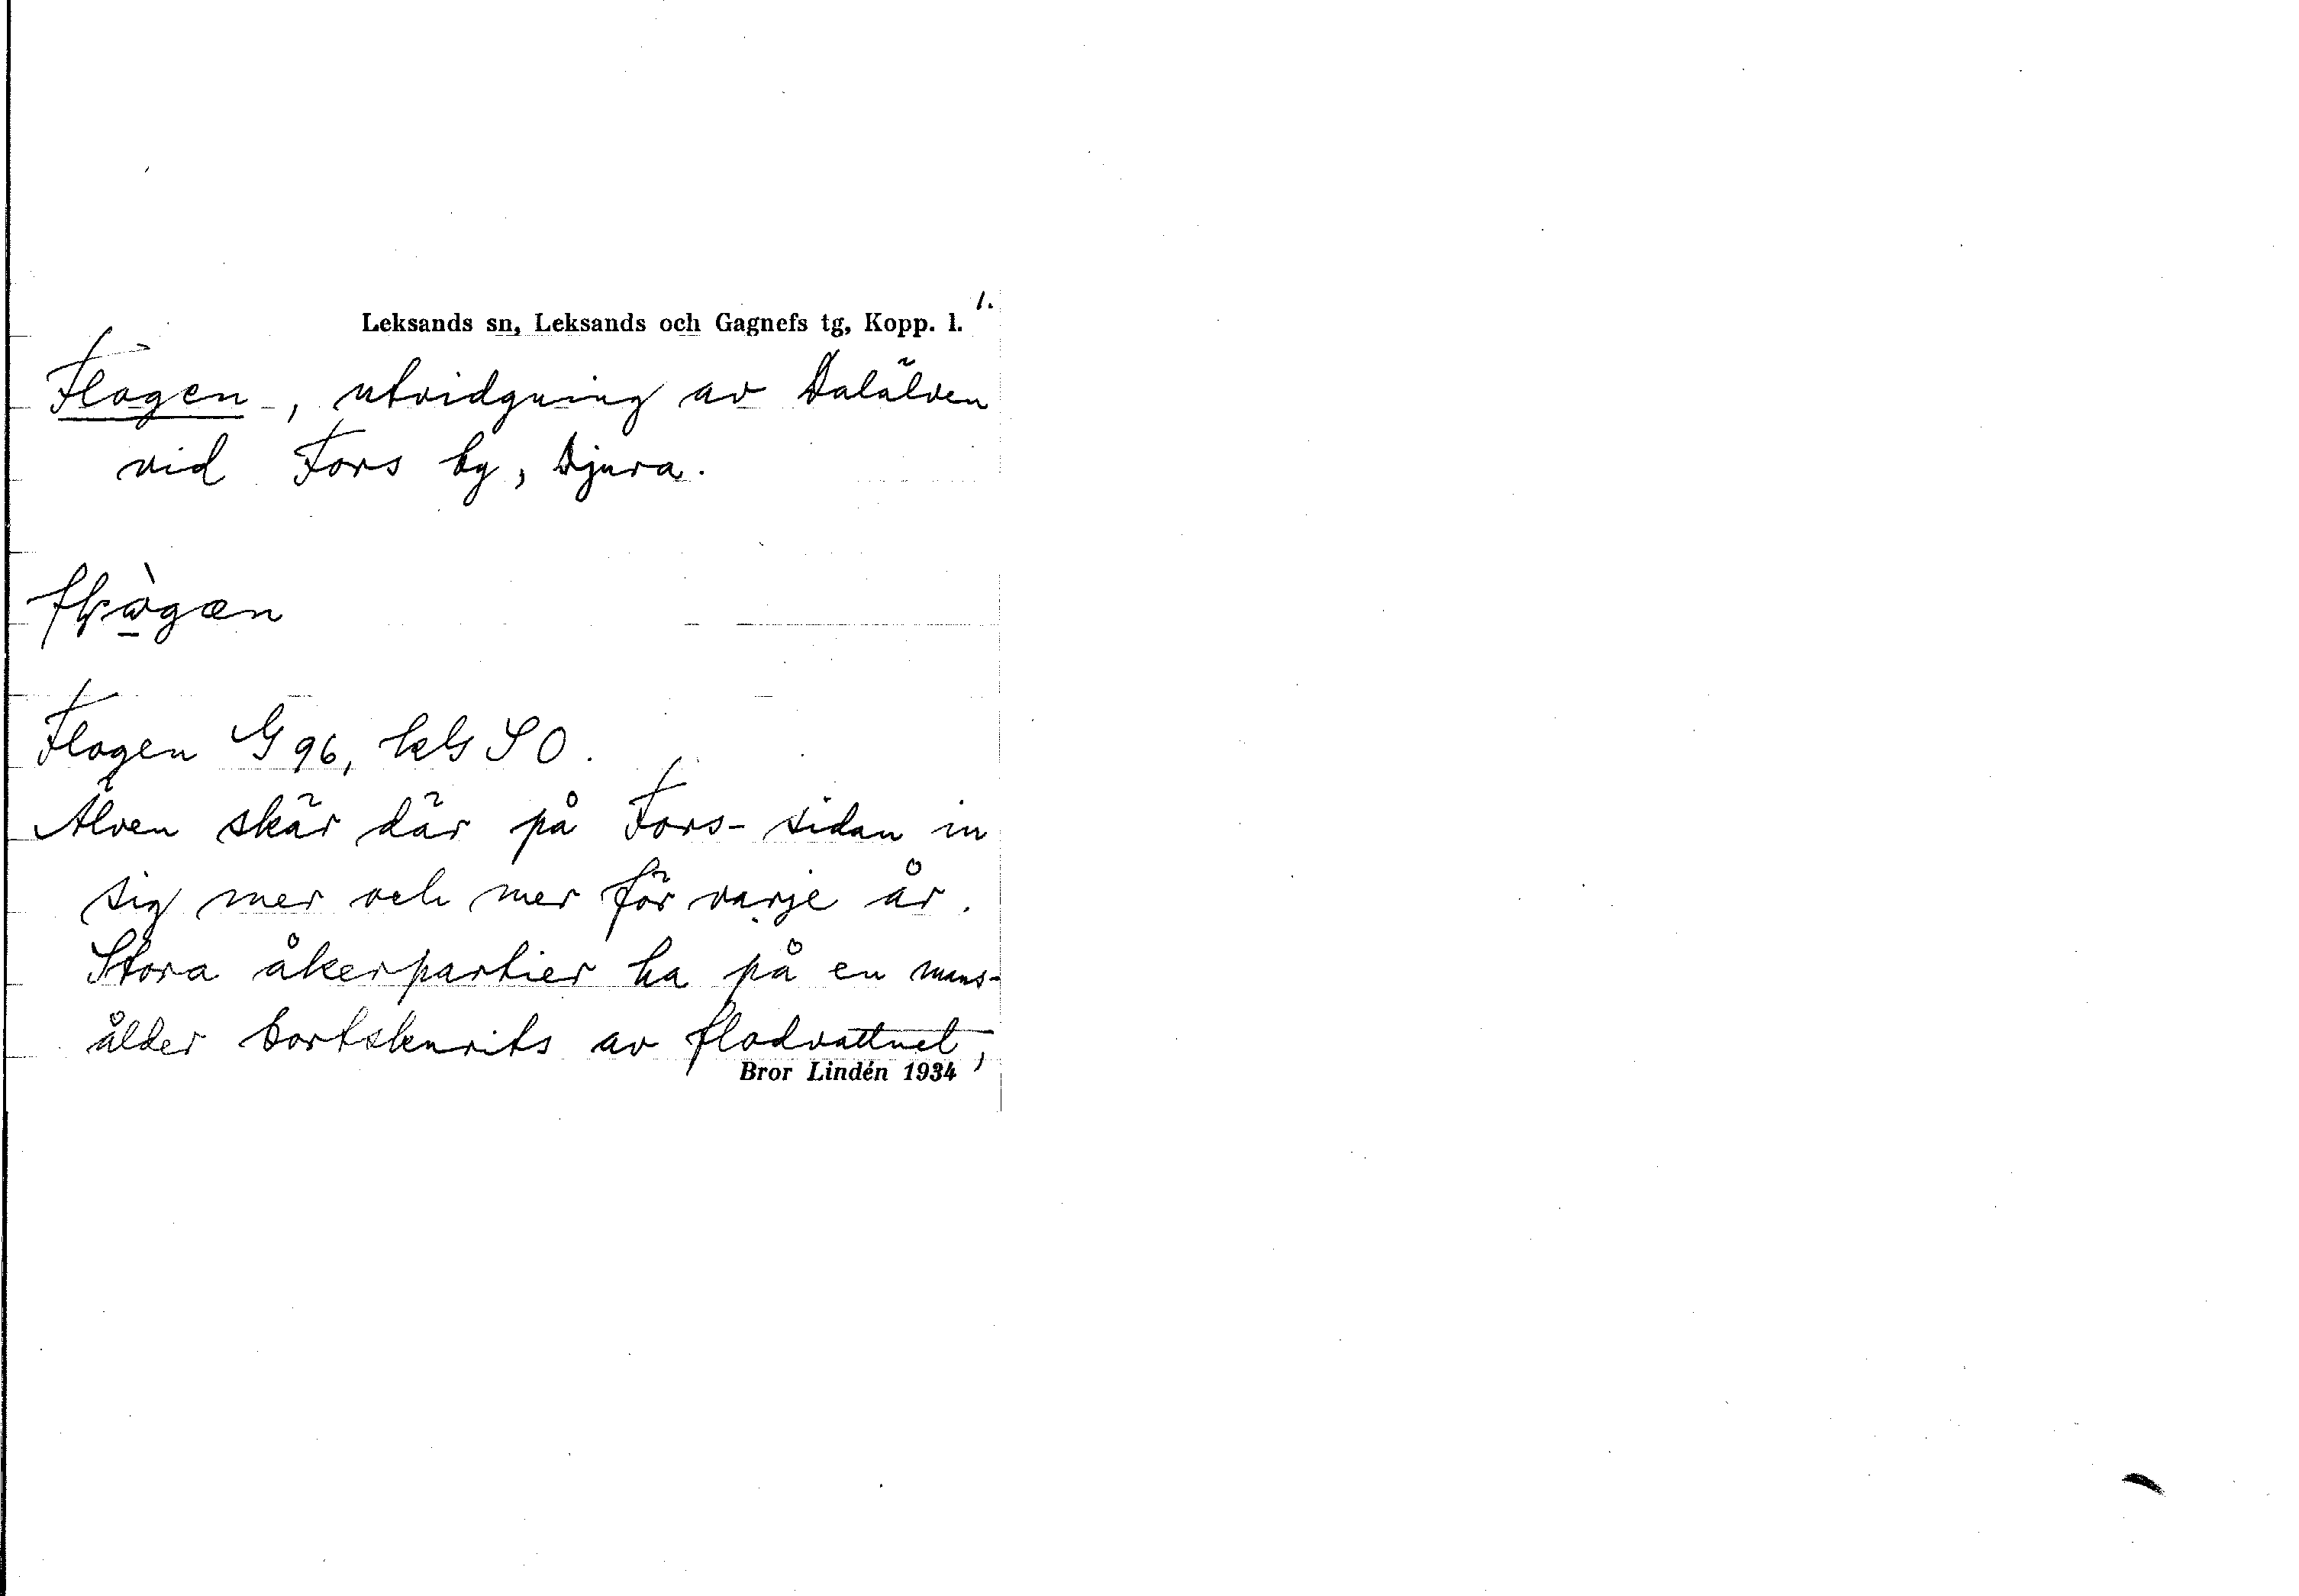 1.
Leksands sn, Leksands och Gagnefs tg, Kopp. l.
Flogen, utvidgning av Dalälven
vid Fors by, Djura.
Flogen G 96, kbl SO.
Älven skär där på Fors-sidan in
sig mer och mer för varje år.
Stora åkerpartier ha på en mans-
ålder bortskurits av flodvattnet,
Bror Lindén 1934